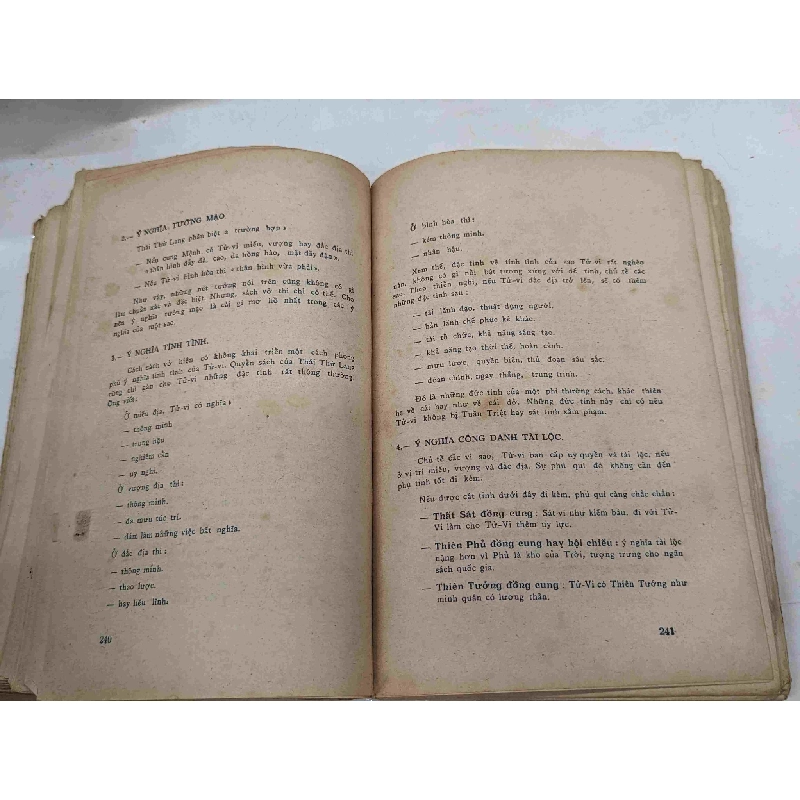 2.— Ý NGHĨA TƯỚNG MẠO
Thái Thứ Lang phân biệt 2 trường hợp:
— Nếu cung Mệnh có Tử-vi miếu, vượng hay đắc địa thì
«thân hình đẫy đà, cao, da hồng hào, mặt đầy đặn».
— Nếu Tử-vi bình hòa thì «thân hình vừa phải».
Như vậy, những nét tướng nói trên cũng không có gì
lấy chuẩn xác và đặc biệt. Nhưng, sách vở thì chỉ có thế. Cho
nên ý nghĩa tướng mạo là cái gì mơ hồ nhất trong các ý
nghĩa của một sao.
3.— Ý NGHĨA TÍNH TÌNH.
Cách sách vở hiện có không khai triển một cách phong
phú ý nghĩa tính tình của Tử-vi. Quyển sách của Thái Thứ Lang
cũng chỉ gán cho Tử-vi những đặc tính rất thông thường.
Ông viết:
Ở miếu địa, Tử-vi có nghĩa:
— thông minh
— trung hậu
— nghiêm cẩn
— uy nghi.
Ở vượng địa thì:
— thông minh.
— đa mưu túc trí.
— dám làm những việc bất nghĩa.
Ở đắc địa thì:
— thông minh.
— thao lược.
— hay liều lĩnh.
240
Ở bình hòa thì:
— kém thông minh.
— nhân hậu.
Xem thế, đặc tính về tính tình của sao Tử-vi rất nghèo
nàn, không có gì nổi bật tương xứng với đế tinh, chủ tể các
sao. Theo thiển nghĩ, nếu Tử-vi đắc địa trở lên, sẽ có thêm
những đặc tính sau:
— tài lãnh đạo, thuật dụng người.
— bản lãnh chế phục kẻ khác.
— tài tổ chức, khả năng sáng tạo.
— khả năng tạo thời thế, hoàn cảnh.
— mưu lược, quyền biến, thủ đoạn sâu sắc.
— đoan chính, ngay thẳng, trung trinh.
Đó là những đức tính của một phi thường cách, khác thiên
hạ về cái hay như về cái dở. Những đức tính này chỉ có nếu
Tử-vi không bị Tuần Triệt hay sát tinh xâm phạm.
4.— Ý NGHĨA CÔNG DANH TÀI LỘC.
Chủ tể các vì sao, Tử-vi ban cấp uy quyền và tài lộc, nếu
ở vị trí miếu, vượng và đắc địa. Sự phú quí đó không cần đến
phụ tinh tốt đi kèm.
Nếu được cát tinh dưới đây đi kèm, phú quí càng chắc chắn:
— Thất Sát đồng cung: Sát ví như kiếm báu, đi với Tử-
Vi làm cho Tử-Vi thêm uy lực.
— Thiên Phủ đồng cung hay hội chiếu: ý nghĩa tài lộc
nặng hơn vì Phủ là kho của Trời, tượng trưng cho ngân
sách quốc gia.
— Thiên Tướng đồng cung: Tử-Vi có Thiên Tướng như
minh quân có lương thần.
241